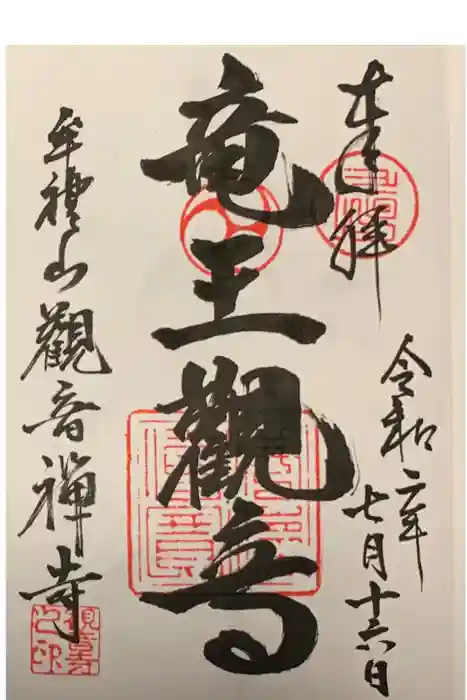 奉拝
令和二年
七月十六日
竜王観音
牟禮山觀音禅寺